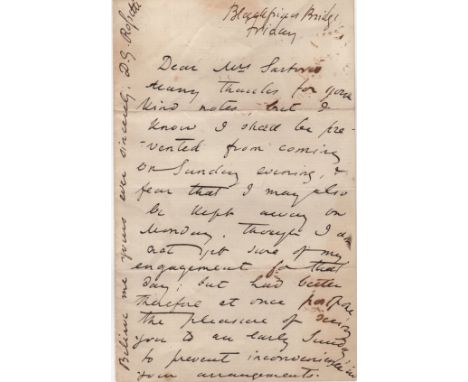 Blackfriars Bridge
Friday
Dear Mrs Sartoris
Many thanks for your
kind note, but I
know I shall be pre-
vented from coming
on Sunday evening, &
fear that I may also
be kept away on
Monday, though I am
not yet sure of my
engagement for that
day; but had better
therefore at once postpone
the pleasure of seeing
you to an early Sunday,
to prevent inconvenience in
your arrangements.
Believe me yours ever sincerely, D. G. Rossetti